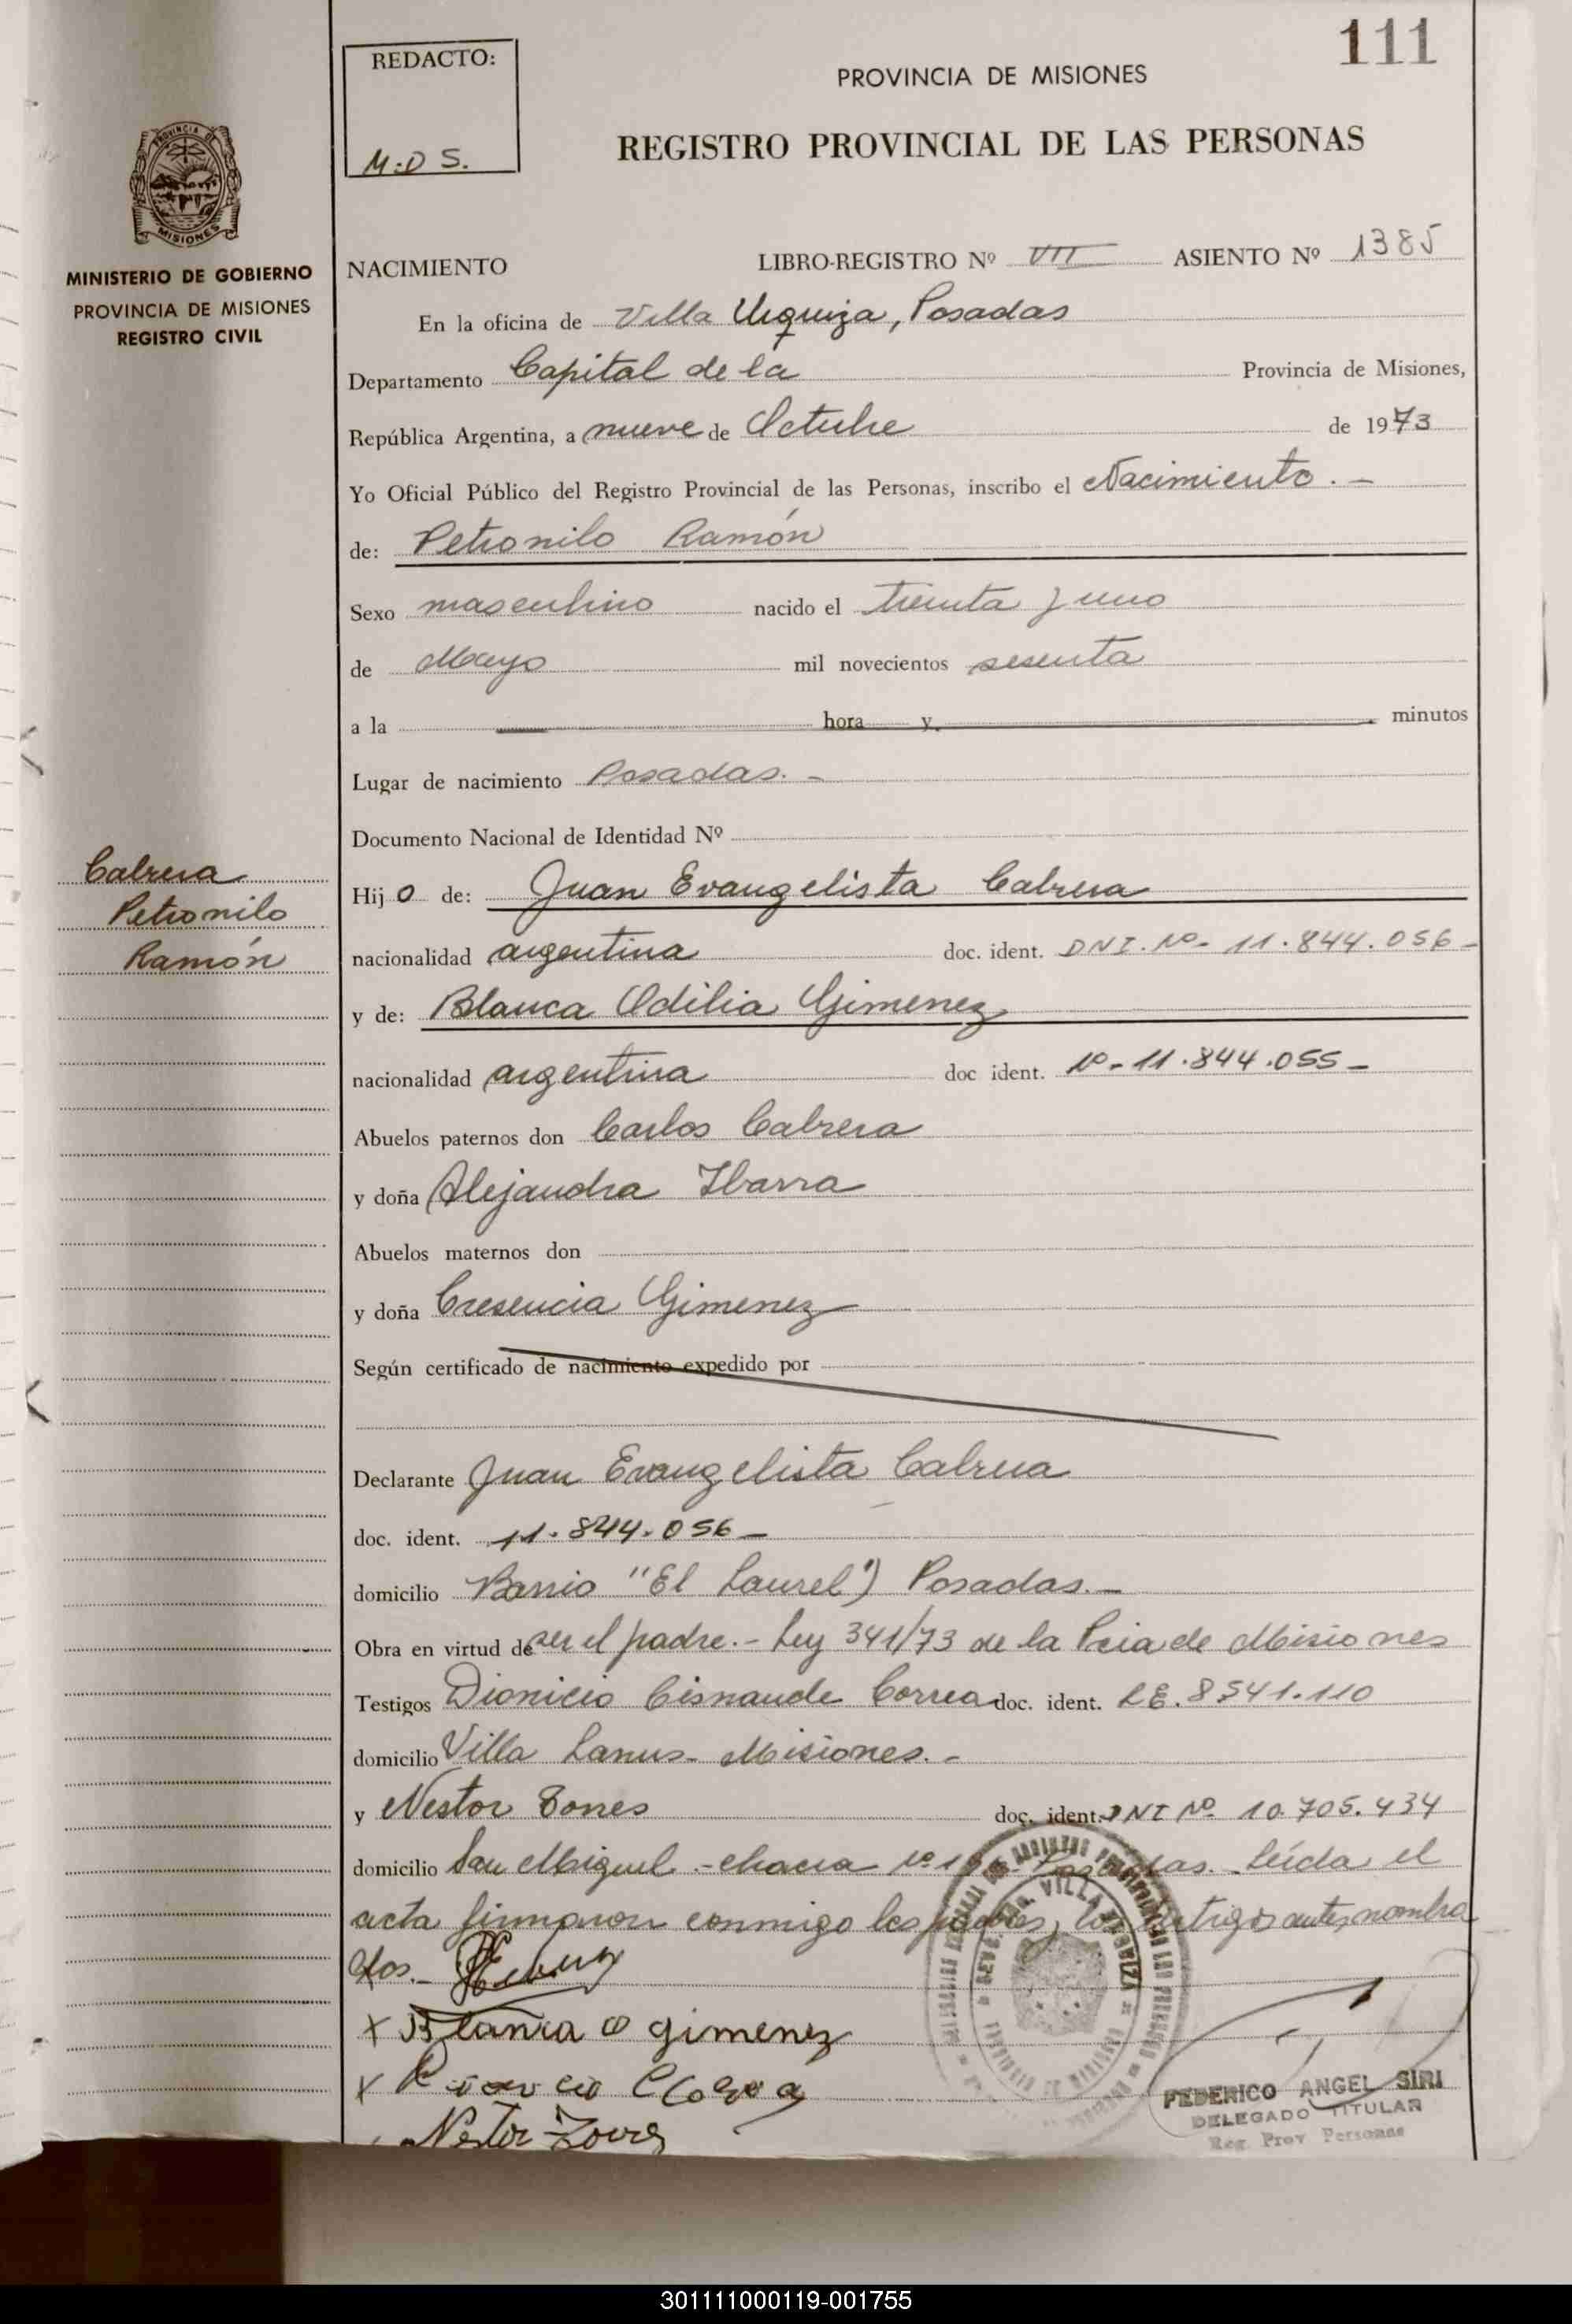 111
REDACTO:
M.D S.
PROVINCIA DE MISIONES
REGISTRO PROVINCIAL DE LAS PERSONAS
PROVINCIA DE
MISIONES
MINISTERIO DE GOBIERNO
PROVINCIA DE MISIONES
REGISTRO CIVIL
NACIMIENTO LIBRO-REGISTRO Nº VII ASIENTO Nº 1385
En la oficina de Villa Urquiza, Posadas
Departamento Capital de la Provincia de Misiones,
República Argentina, a nueve de Octubre de 1973
Yo Oficial Público del Registro Provincial de las Personas, inscribo el Nacimiento. -
de: Petronilo Ramón
Sexo masculino nacido el treinta y uno
de Mayo mil novecientos sesenta
a la hora y minutos
Lugar de nacimiento Posadas. -
Documento Nacional de Identidad Nº
Cabrera
Petronilo
Ramón
Hij o de: Juan Evangelista Cabrera
nacionalidad argentina doc. ident. DNI. Nº- 11.844.056-
y de: Blanca Odilia Gimenez
nacionalidad argentina doc ident. Nº- 11.844.055-
Abuelos paternos don Carlos Cabrera
y doña Alejandra Ibarra
Abuelos maternos don
y doña Cresencia Gimenez
Según certificado de nacimiento expedido por
Declarante Juan Evangelista Cabrera
doc. ident. 11.844.056-
domicilio Barrio "El Laurel") Posadas.-
Obra en virtud de ser el padre.- Ley 341/73 de la Pcia de Misiones
Testigos Dionicio Correa doc. ident. LE. 8541.110
domicilio Villa Lanus- Misiones.-
y Nestor Torres doc. ident. DNI Nº 10.705.434
domicilio San Miguel -chacra Posadas. Leída el
acta firmaron conmigo los padres y los testigos antes nombra
dos.-
x Blanca O gimenez
x
Nestor Torres
VILLA URQUIZA
FEDERICO ANGEL SIRI
DELEGADO TITULAR
Reg. Prov Personas
301111000119-001755